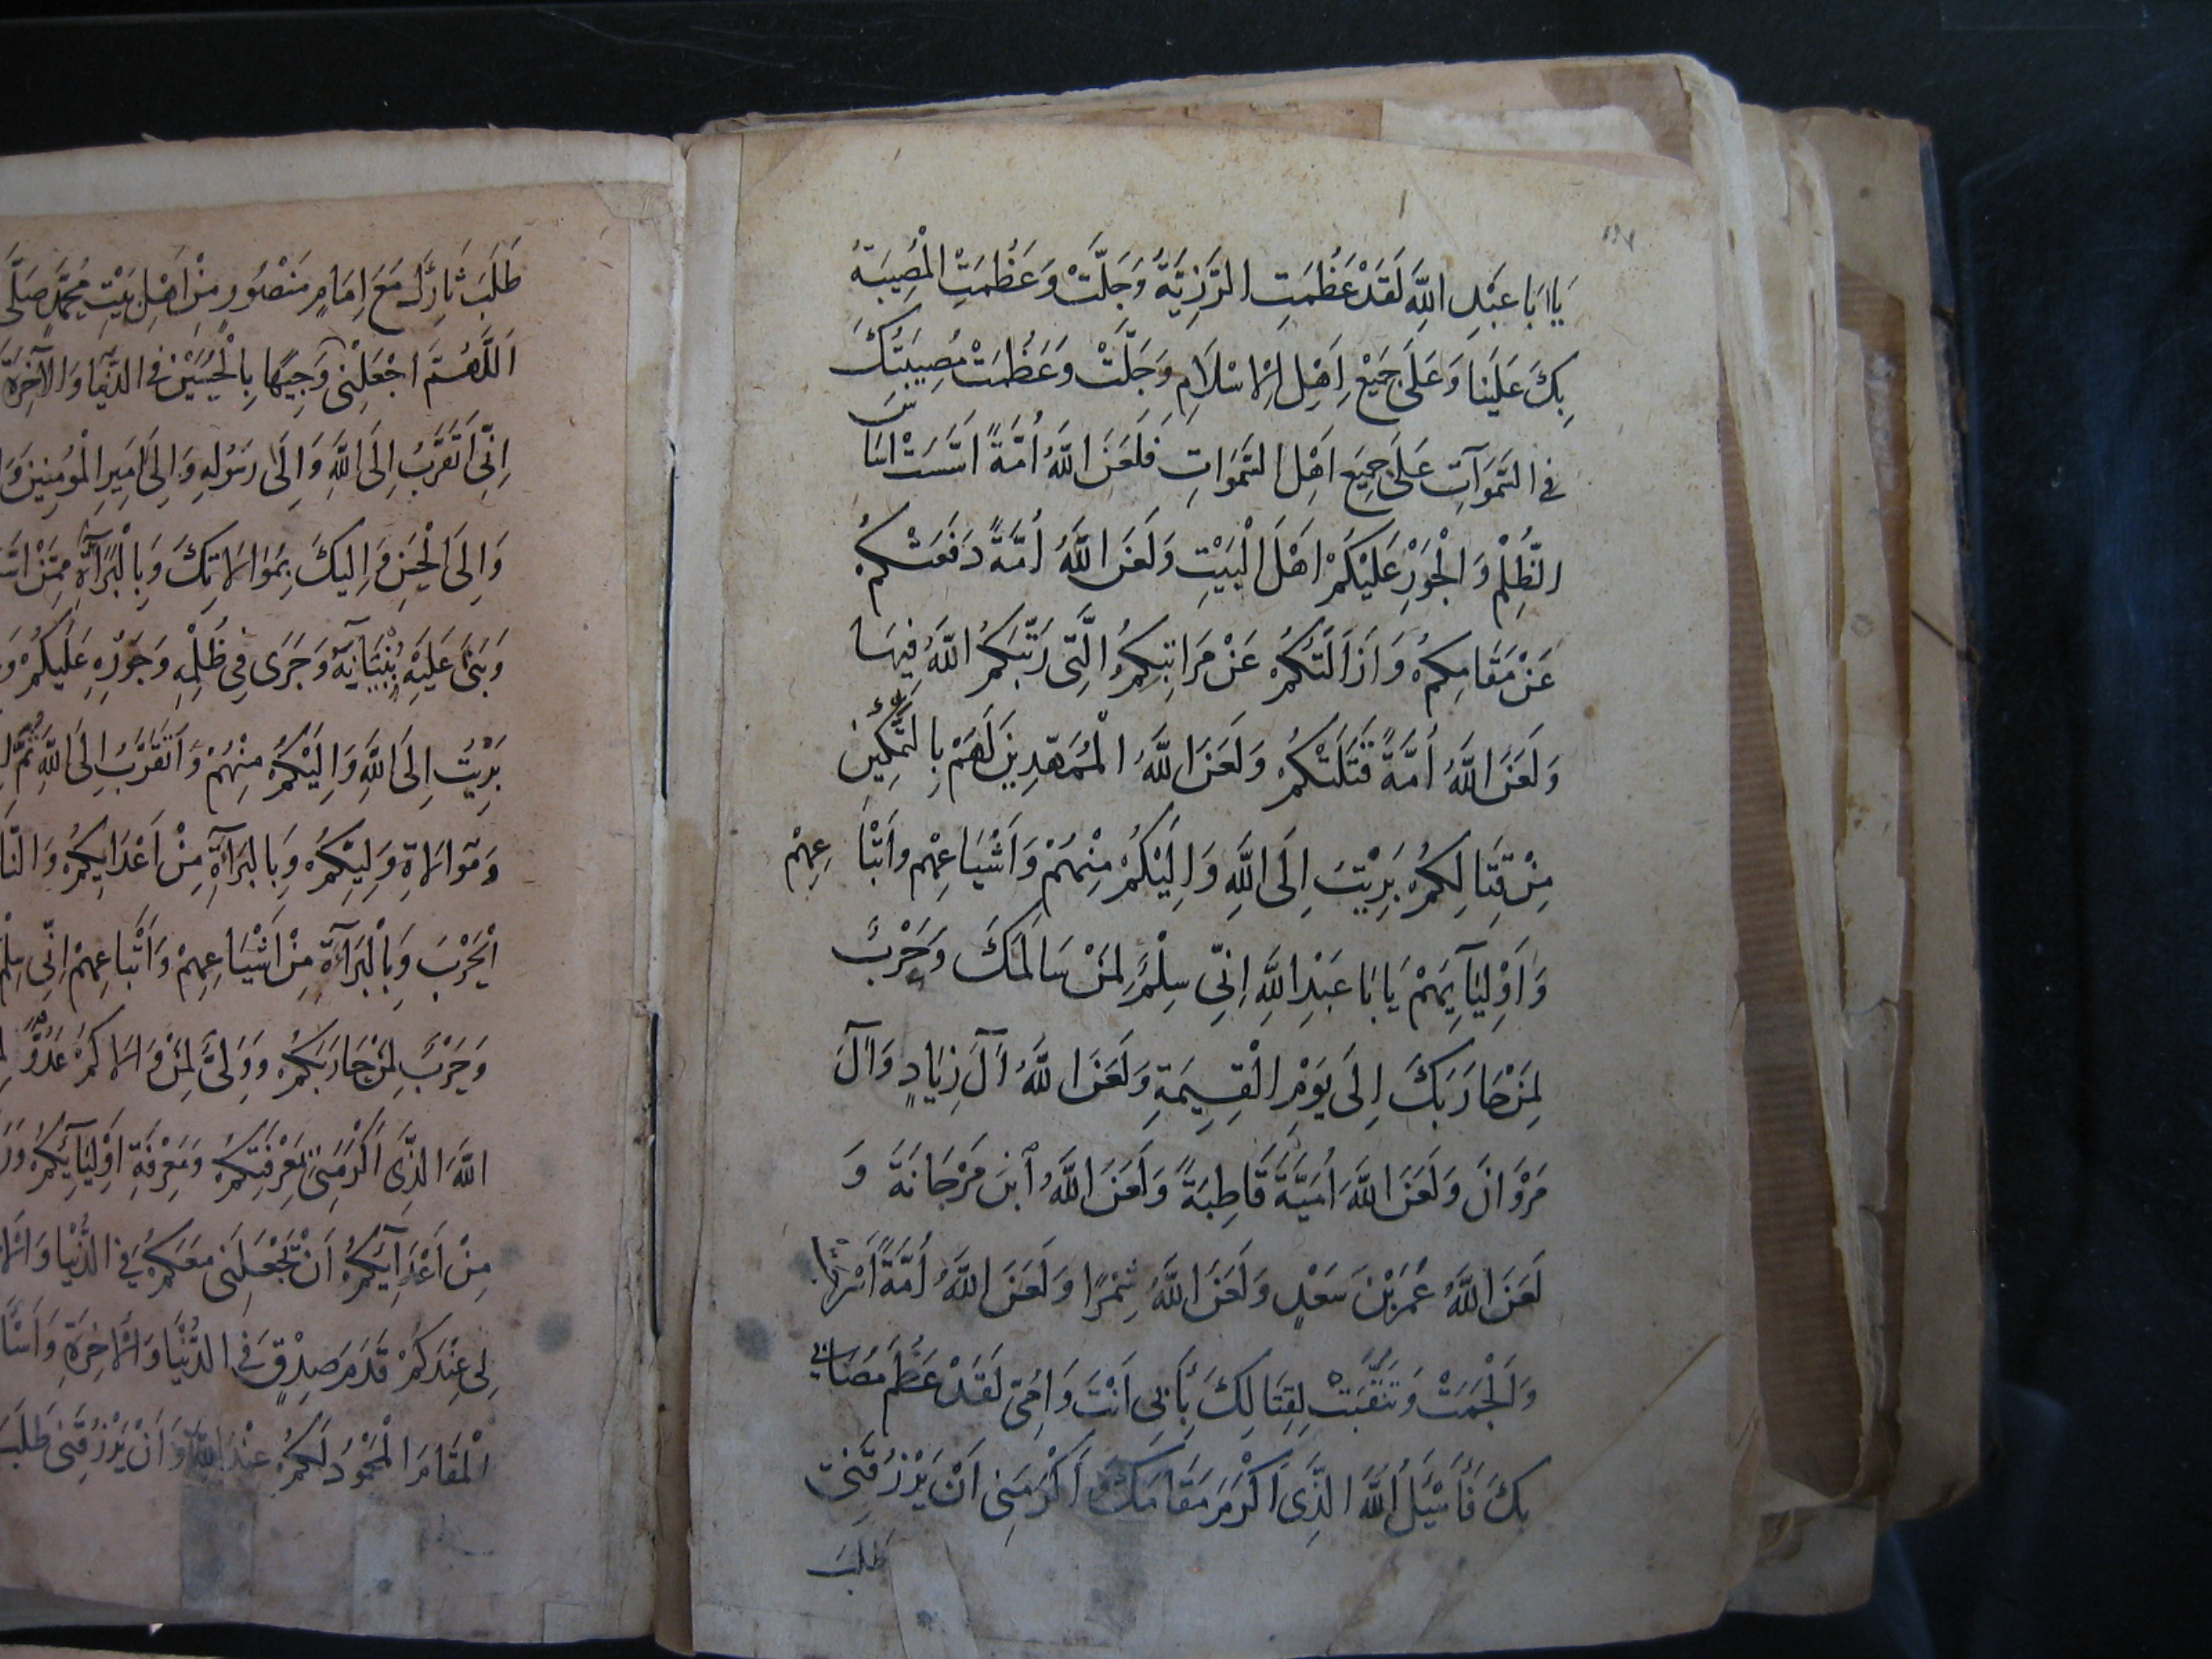 يَا اَبَا عَبْدِ اللَّهِ لَقَدْ عَظُمَتِ الرَّزِيَّةُ وَجَلَّتْ وَعَظُمَتِ الْمُصِيبَةُ
بِكَ عَلَيْنَا وَعَلَى جَمِيْعِ اَهْلِ الْاِسْلَامِ وَجَلَّتْ وَعَظُمَتْ مُصِيبَتُكَ
فِي السَّمَوَاتِ عَلَى جَمِيعِ اَهْلِ السَّمَوَاتِ فَلَعَنَ اللَّهُ اُمَّةً اَسَّسَتْ اَسَاسَ
الظُّلْمِ وَالْجَوْرِ عَلَيْكُمْ اَهْلَ الْبَيْتِ وَلَعَنَ اللَّهُ اُمَّةً دَفَعَتْكُمْ
عَنْ مَقَامِكُمْ وَاَزَالَتْكُمْ عَنْ مَرَاتِبِكُمُ الَّتِى رَتَّبَكُمُ اللَّهُ فِيهَا
وَلَعَنَ اللَّهُ اُمَّةً قَتَلَتْكُمْ وَلَعَنَ اللَّهُ الْمُمَهِّدِينَ لَهُمْ بِالتَّمْكِينِ
مِنْ قِتَالِكُمْ بَرِيْتُ اِلَى اللَّهِ وَاِلَيْكُمْ مِنْهُمْ وَاَشْيَاعِهِمْ وَاَتْبَاعِهِمْ
وَاَوْلِيَآيِهِمْ يَا بَا عَبْدِ اللَّهِ اِنِّى سِلْمٌ لِمَنْ سَالَمَكَ وَحَرْبٌ
لِمَنْ حَارَبَكَ اِلَى يَوْمِ الْقِيمَةِ وَلَعَنَ اللَّهُ آلَ زِيَادٍ وَآلَ
مَرْوَانَ وَلَعَنَ اللَّهُ اُمَيَّةَ قَاطِبَةً وَلَعَنَ اللَّهُ ابْنَ مَرْجَانَةَ وَ
لَعَنَ اللَّهُ عُمَرَ بْنَ سَعْدٍ وَلَعَنَ اللَّهُ شِمْرًا وَلَعَنَ اللَّهُ اُمَّةً اَسْرَجَتْ
وَاَلْجَمَتْ وَتَنَقَّبَتْ لِقِتَالِكَ بِاَبِى اَنْتَ وَاُمِّى لَقَدْ عَظُمَ مُصَابِى
بِكَ فَاَسْئَلُ اللَّهَ الَّذِى اَكْرَمَ مَقَامَكَ وَ اَكْرَمَنِى اَنْ يَرْزُقَنِى
طَلَبَ
طَلَبَ ثَارِكَ مَعَ اِمَامٍ مَنْصُورٍ مِنْ اَهْلِ بَيْتِ مُحَمَّدٍ صَلَّى
اَللَّهُمَّ اجْعَلْنِى وَجِيهًا بِالْحُسَيْنِ فِى الدُّنْيَا وَالْآخِرَةِ
اِنِّى اَتَقَرَّبُ اِلَى اللَّهِ وَاِلَى رَسُولِهِ وَاِلَى اَمِيرِ الْمُومِنِينَ
وَاِلَى الْحَسَنِ وَاِلَيْكَ بِمُوَالَاتِكَ وَبِالْبَرَآءَةِ مِمَّنْ
وَبَنَى عَلَيْهِ بُنْيَانَهُ وَجَرَى فِى ظُلْمِهِ وَجَوْرِهِ عَلَيْكُمْ
بَرِيْتُ اِلَى اللَّهِ وَاِلَيْكُمْ مِنْهُمْ وَاَتَقَرَّبُ اِلَى اللَّهِ ثُمَّ
وَمُوَالَاةِ وَلِيِّكُمْ وَبِالْبَرَآءَةِ مِنْ اَعْدَايِكُمْ
الْحَرْبَ وَبِالْبَرَآءَةِ مِنْ اَشْيَاعِهِمْ وَاَتْبَاعِهِمْ اِنِّى سِلْمٌ
وَحَرْبٌ لِمَنْ حَارَبَكُمْ وَوَلِىٌّ لِمَنْ وَالَاكُمْ عَدُوٌّ
اللَّهَ الَّذِى اَكْرَمَنِى بِمَعْرِفَتِكُمْ وَمَعْرِفَةِ اَوْلِيَآئِكُمْ
مِنْ اَعْدَآئِكُمْ اَنْ يَجْعَلَنِى مَعَكُمْ فِى الدُّنْيَا
لِى عِنْدَكُمْ قَدَمَ صِدْقٍ فِى الدُّنْيَا وَالْآخِرَةِ
الْمَقَامَ الْمَحْمُودَ لَكُمْ عِنْدَ اللَّهِ وَاَنْ يَرْزُقَنِى طَلَبَ